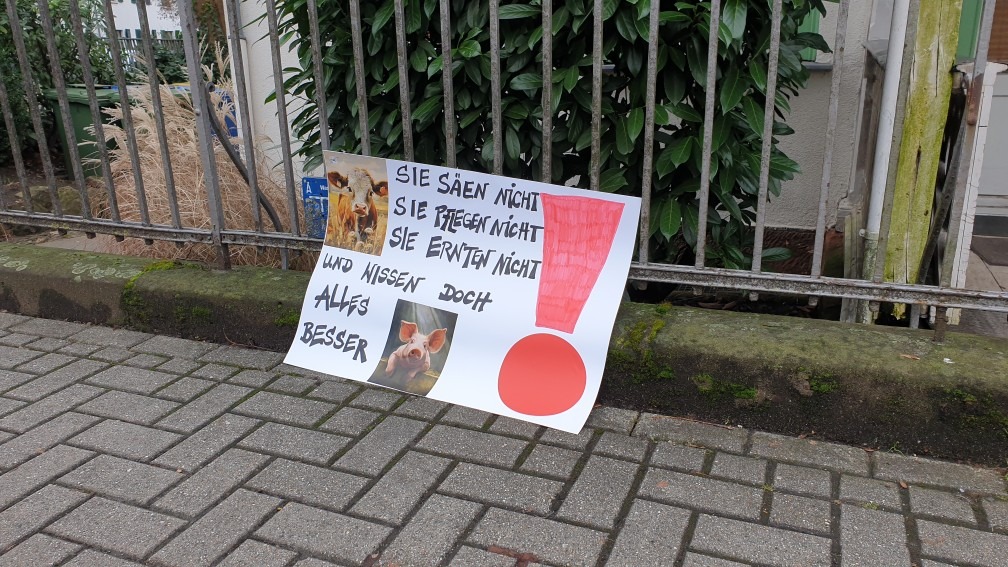 SIE SÄEN NICHT
SIE PFLEGEN NICHT
SIE ERNTEN NICHT
UND WISSEN DOCH
ALLES
BESSER
!
A